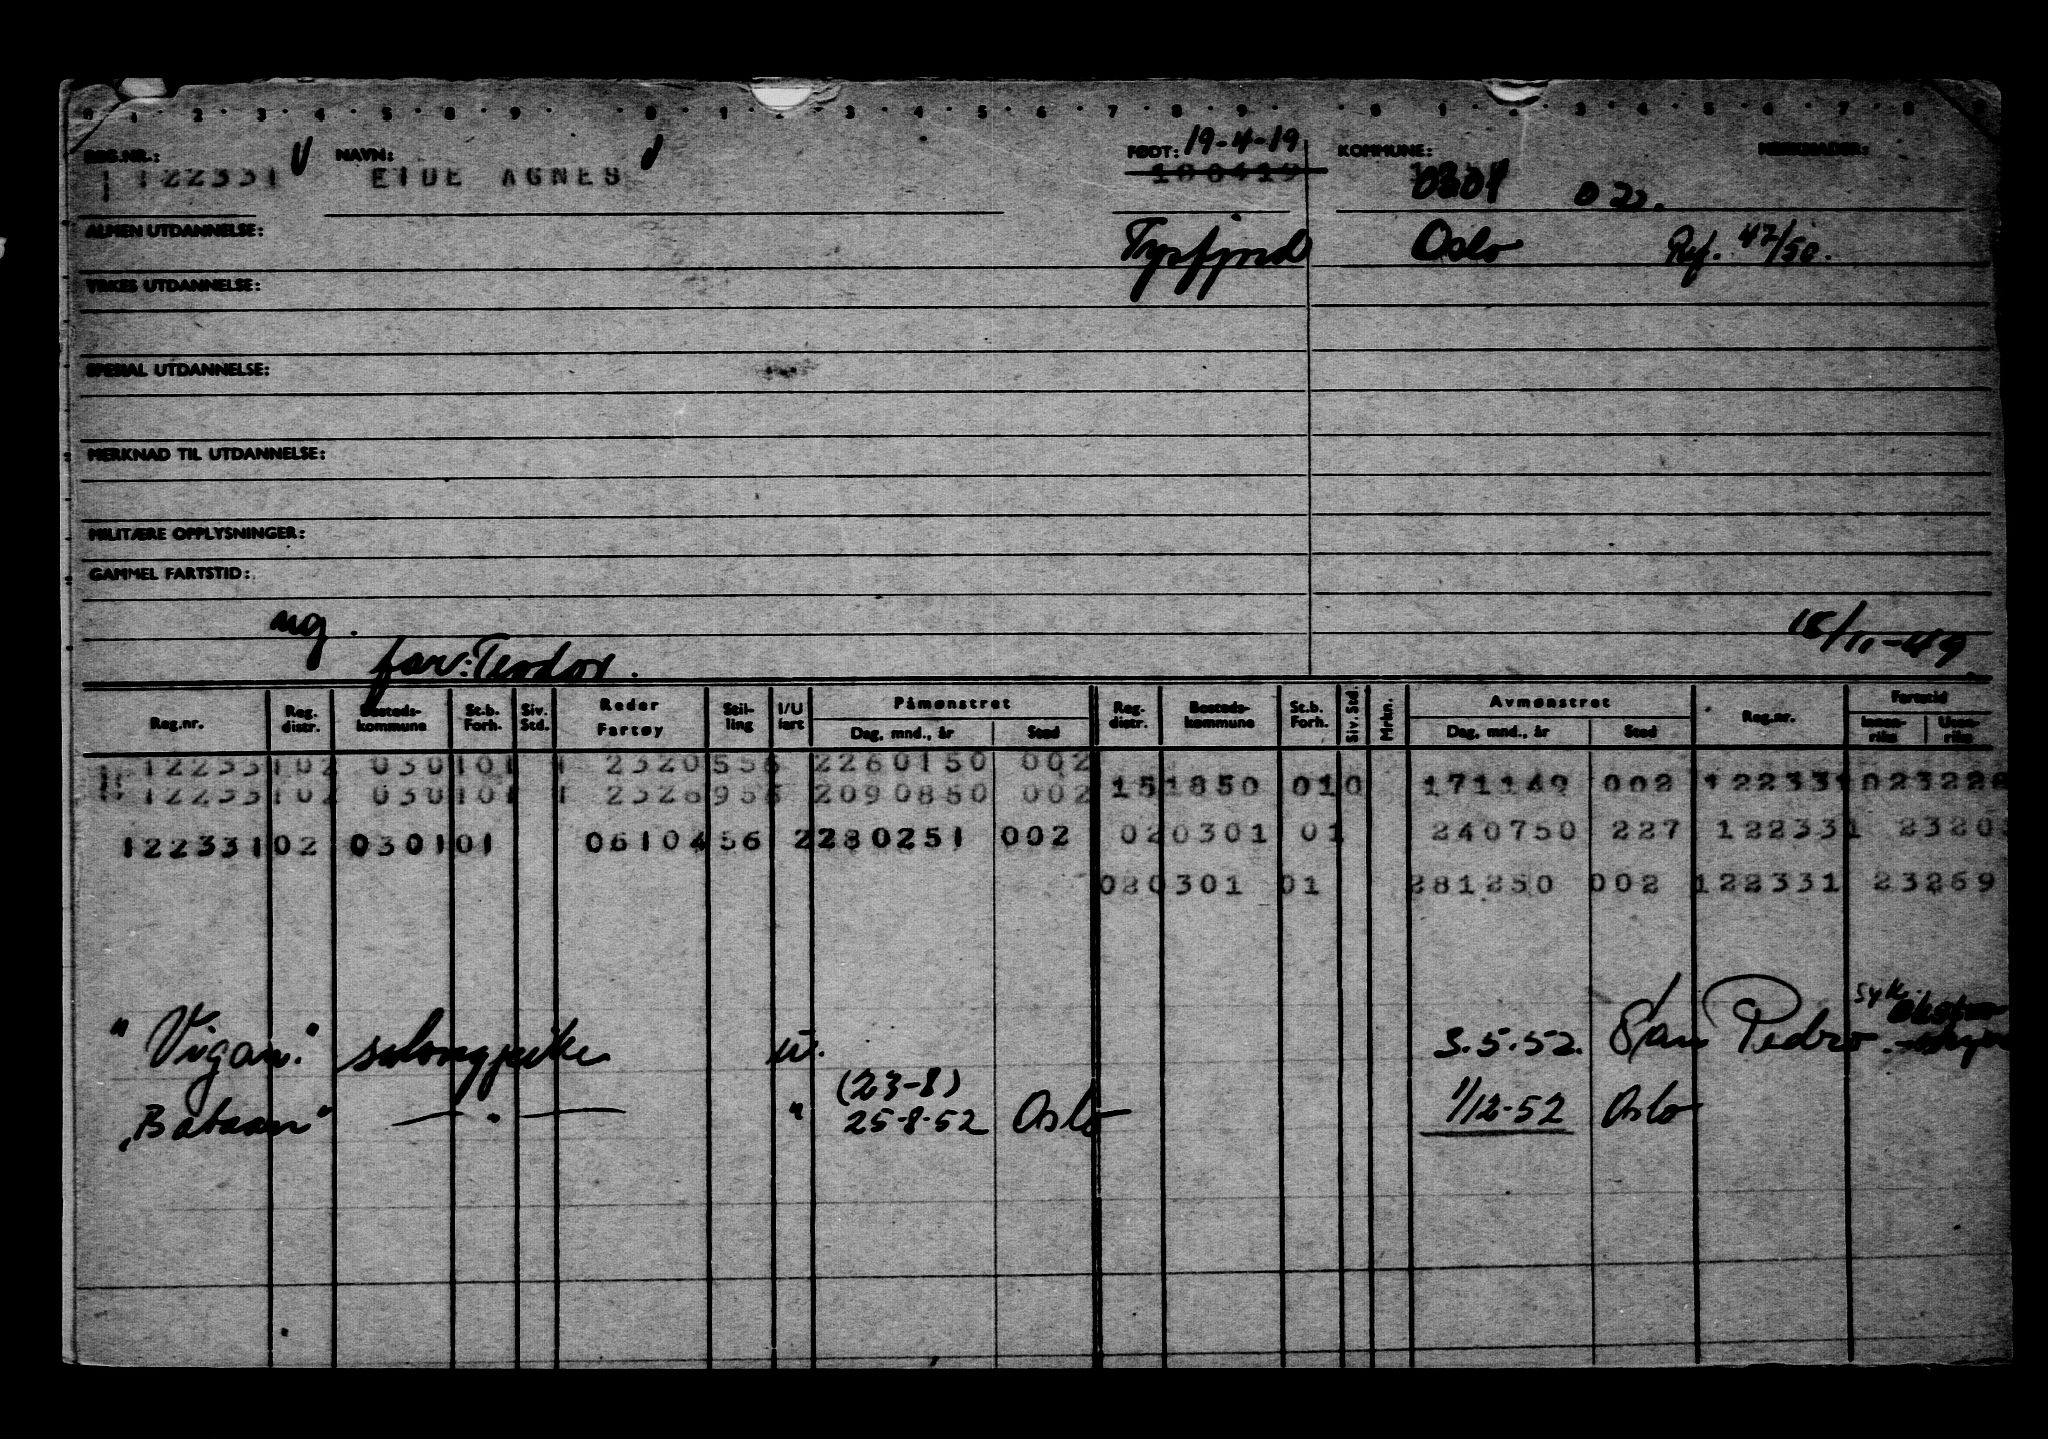 REG.NR.: NAVN: FØDT: 19-4-19 KOMMUNE: MERKNADER:
122331 EIDE AGNES 180419 0301
ALMEN UTDANNELSE: Tysfjord Oslo Ref. 47/50.
YRKES UTDANNELSE:
SPESIAL UTDANNELSE:
MERKNAD TIL UTDANNELSE:
MILITÆRE OPPLYSNINGER:
GAMMEL FARTSTID:
ug. 15/11-49
far: Teodor.
Reg.nr. Reg. distr. Bosteds-kommune St.b. Forh. Siv. Std. Reder Fartøy Stil-ling I/U fart Påmønstret Dag, mnd., år Sted Reg. distr. Bosteds-kommune St.b. Forh. Siv. Std. Mrkn. Avmønstret Dag, mnd., år Sted Reg.nr. Fartstid Innen-riks Uten-riks
122331 02 0301 01 2320 556 2260150 002
122331 02 0301 01 2090850 002 151850 010 171149 002 122331
122331 02 0301 01 06104 56 2280251 002 020301 01 240750 227 122331 2320
020301 01 281250 002 122331 23269
"Vigan." salongpike u. 3.5.52. San Pedro syk
(23-8)
"Bataan" — " — " 25-8-52 Oslo 1/12-52 Oslo